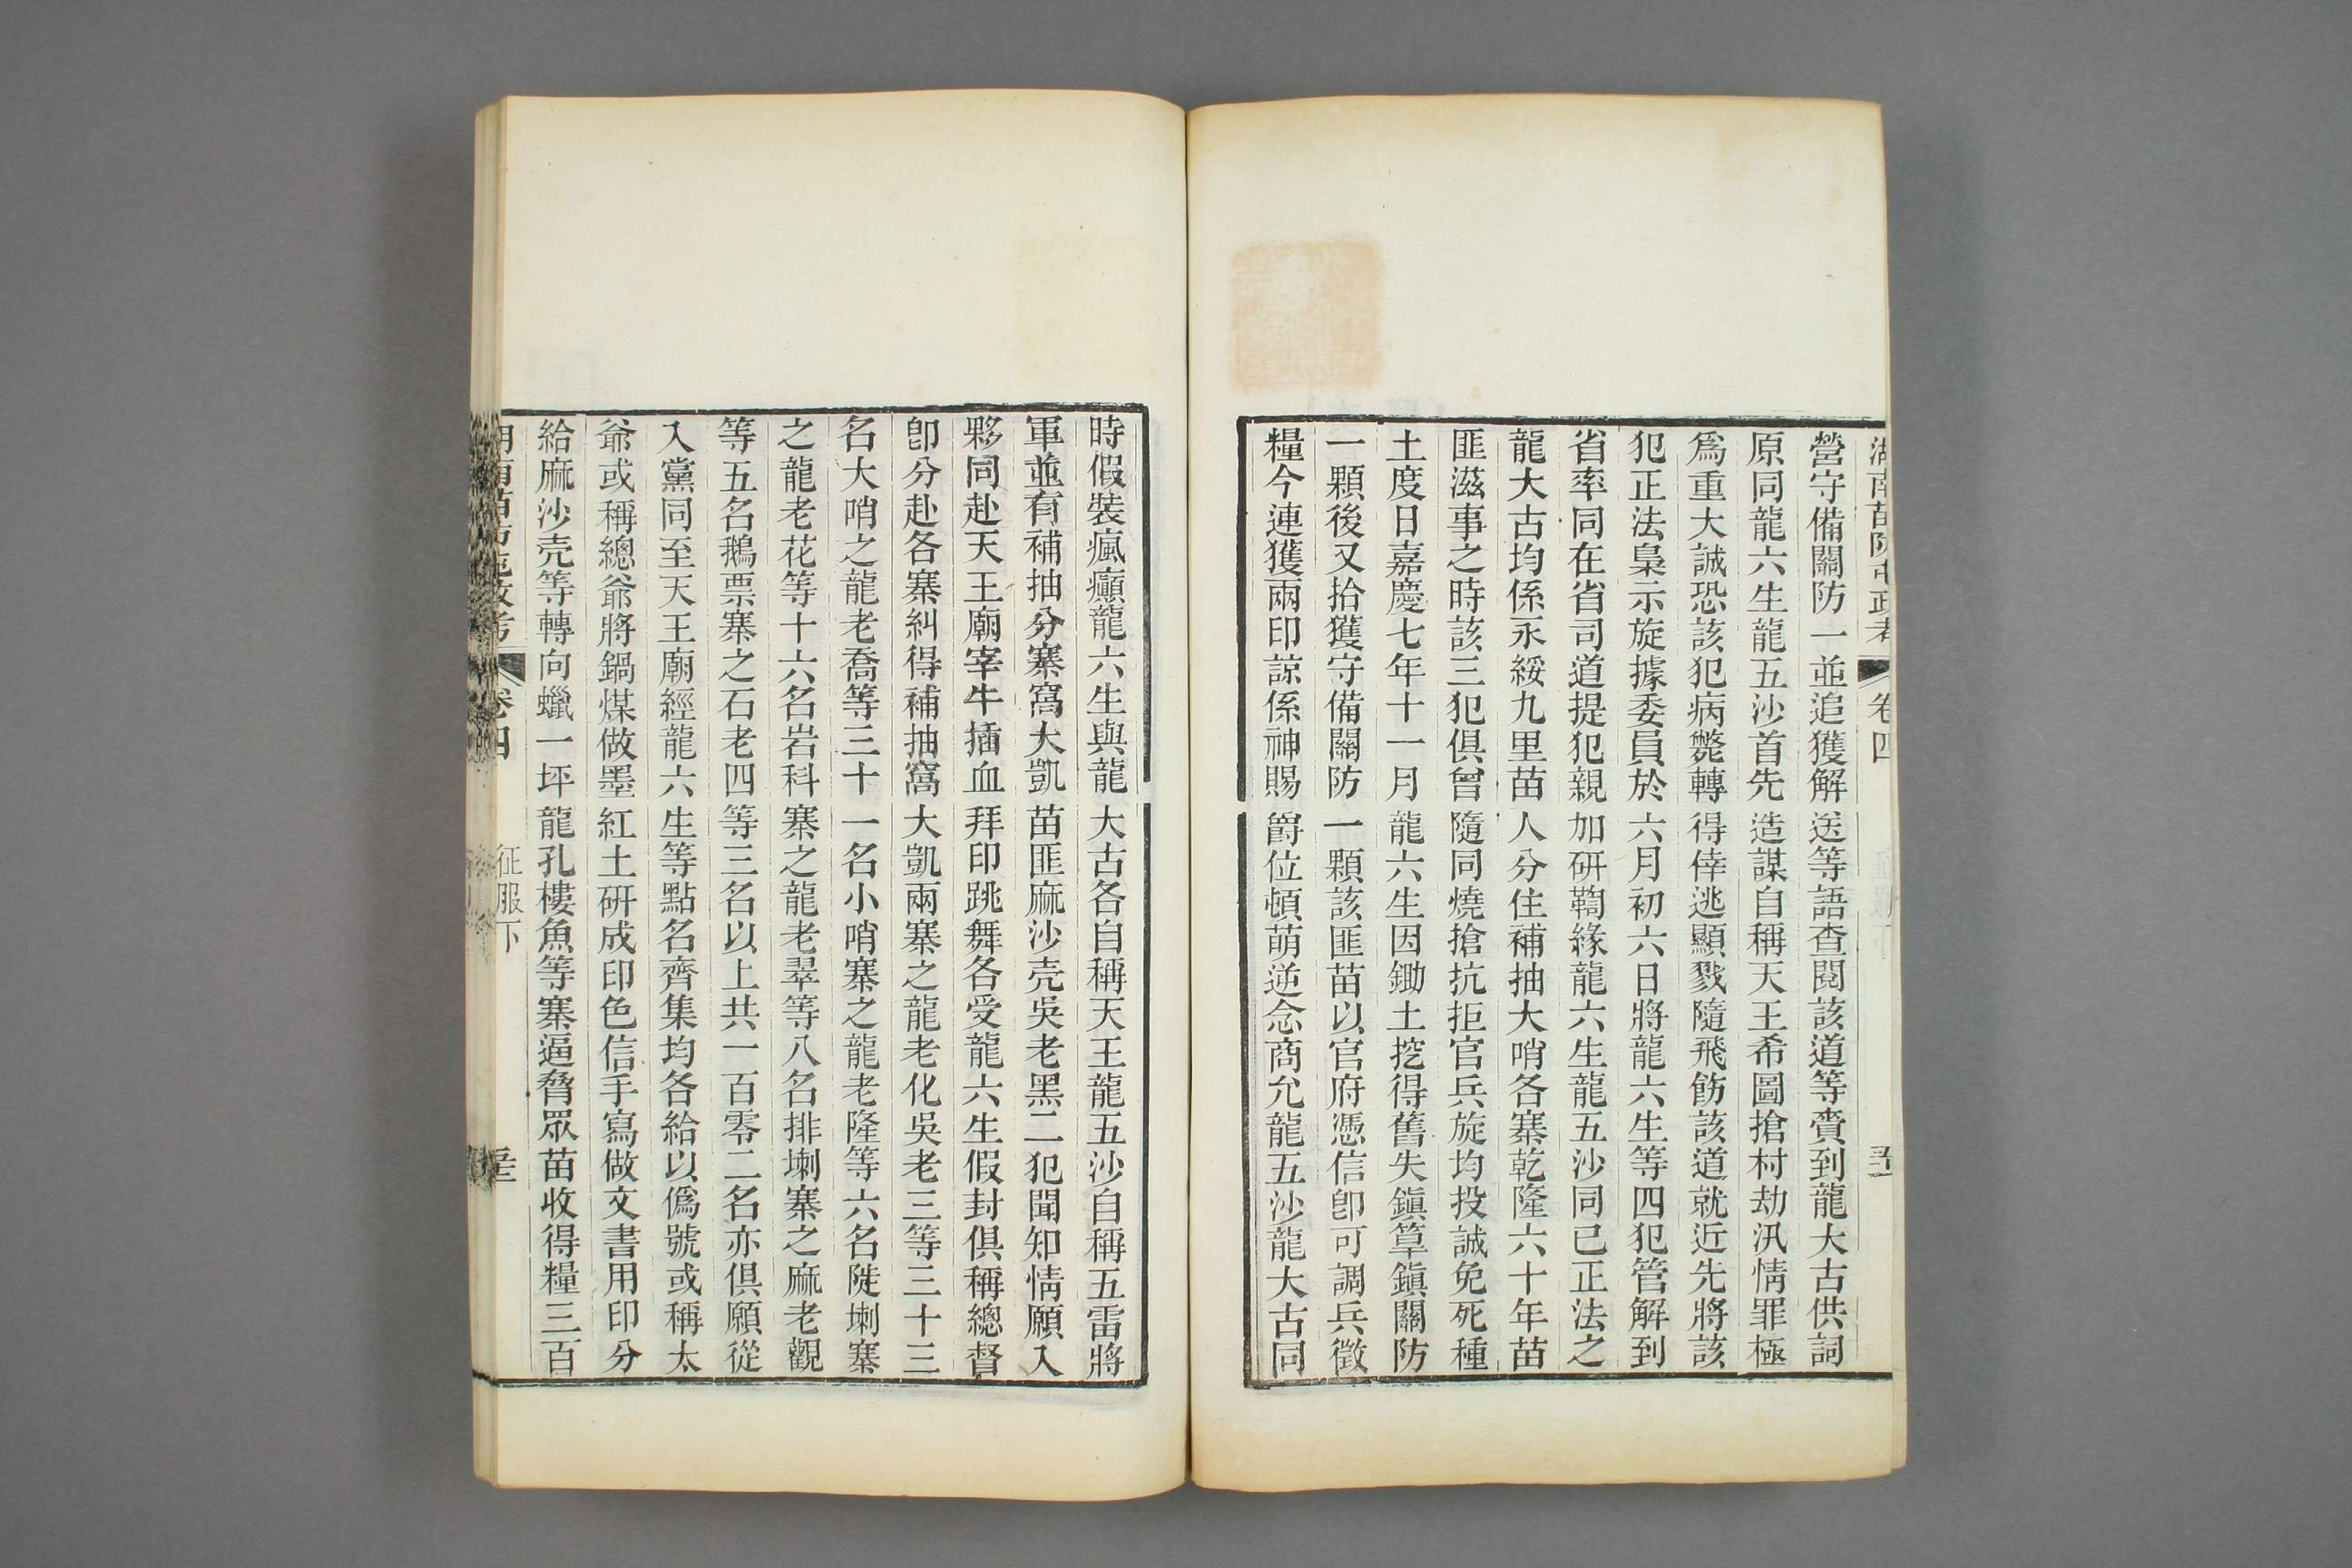 湖南苗防屯政考 卷四
營守備關防一並追獲解送等語查閱該道等賫到龍大古供詞
原同龍六生龍五沙首先造謀自稱天王希圖搶村劫汛情罪極
爲重大誠恐該犯病斃轉得倖逃顯戮隨飛飭該道就近先將該
犯正法梟示旋據委員於六月初六日將龍六生等四犯管解到
省率同在省司道提犯親加研鞫緣龍六生龍五沙同已正法之
龍大古均係永綏九里苗人分住補抽大哨各寨乾隆六十年苗
匪滋事之時該三犯俱曾隨同燒搶抗拒官兵旋均投誠免死種
土度日嘉慶七年十一月龍六生因鋤土挖得舊失鎭筸鎭關防
一顆後又拾獲守備關防一顆該匪苗以官府憑信卽可調兵徵
糧今連獲兩印諒係神賜爵位頓萌逆念商允龍五沙龍大古同
時假裝瘋癲龍六生與龍大古各自稱天王龍五沙自稱五雷將
軍並有補抽分寨窩大凱苗匪麻沙壳吳老黑二犯聞知情願入
夥同赴天王廟宰牛揷血拜印跳舞各受龍六生假封俱稱總督
卽分赴各寨糾得補抽窩大凱兩寨之龍老化吳老三等三十三
名大哨之龍老喬等三十一名小哨寨之龍老隆等六名陡埘寨
之龍老花等十六名岩科寨之龍老翠等八名排埘寨之麻老觀
等五名鵝票寨之石老四等三名以上共一百零二名亦俱願從
入黨同至天王廟經龍六生等點名齊集均各給以僞號或稱太
爺或稱總爺將鍋煤做墨紅土研成印色信手寫做文書用印分
給麻沙壳等轉向蠟一坪龍孔樓魚等寨逼脅眾苗收得糧三百
湖南苗防屯政考 卷四 征服下